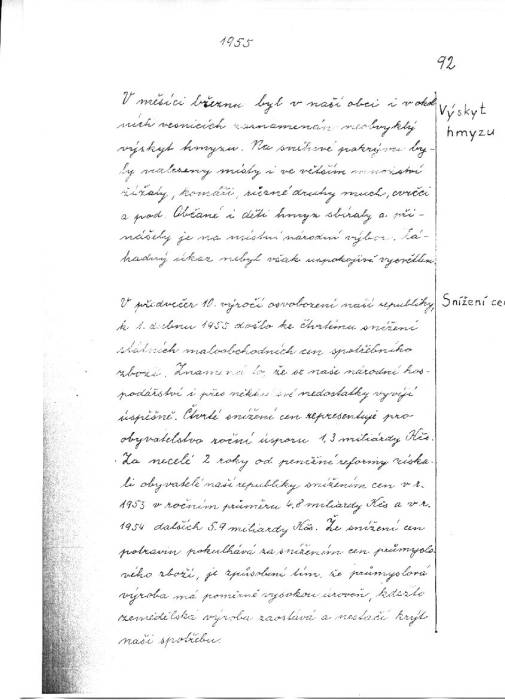 1955
92
V měsíci březnu byl v naší obci i v okol
ních vesnicích zaznamenán neobvyklý
výskyt hmyzu. Na sněhové pokrývce by-
ly nalezeny místy i ve větším množství
žížaly, komáři, různé druhy much, cvrčci
a pod. Občané i děti hmyz sbíraly a při-
nášely je na místní národní výbor. Zá-
hadný úkaz nebyl však uspokojivě vysvětlen.
Výskyt
hmyzu
V předvečer 10. výročí osvobození naší republiky,
k 1. dubnu 1955 došlo ke čtvrtému snížení
státních maloobchodních cen spotřebního
zboží. Znamená to že se naše národní hos-
podářství i přes některé své nedostatky vyvíjí
úspěšně. Čtvrté snížení cen representuje pro
obyvatelstvo roční úsporu 1,3 miliardy Kčs.
Za necelé 2 roky od peněžní reformy získa-
li obyvatelé naší republiky snížením cen v r.
1953 v ročním průměru 4,8 miliardy Kčs a v r.
1954 dalších 5,9 miliardy Kčs. Že snížení cen
potravin pokulhává za snížením cen průmyslo-
vého zboží, je způsobeno tím, že průmyslová
výroba má poměrně vysokou úroveň, kdežto
zemědělská výroba zaostává a nestačí krýt
naši spotřebu.
Snížení cen